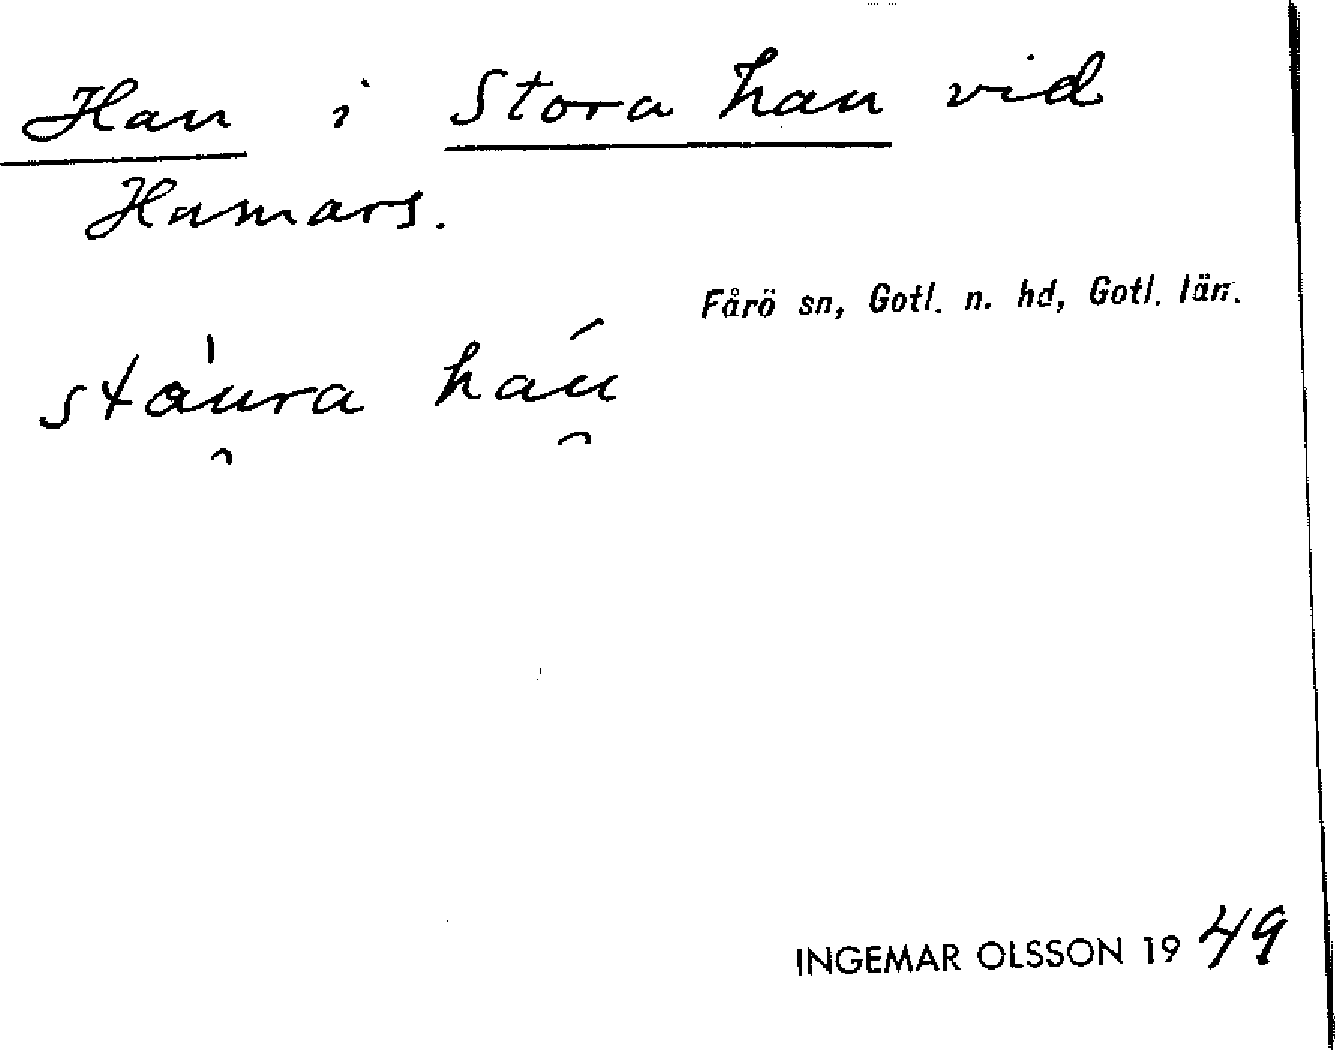 Hau i Stora hau vid
Hammars.
Fårö sn, Gotl. n. hd, Gotl. län.
stàu̯ra háu̯
INGEMAR OLSSON 1949